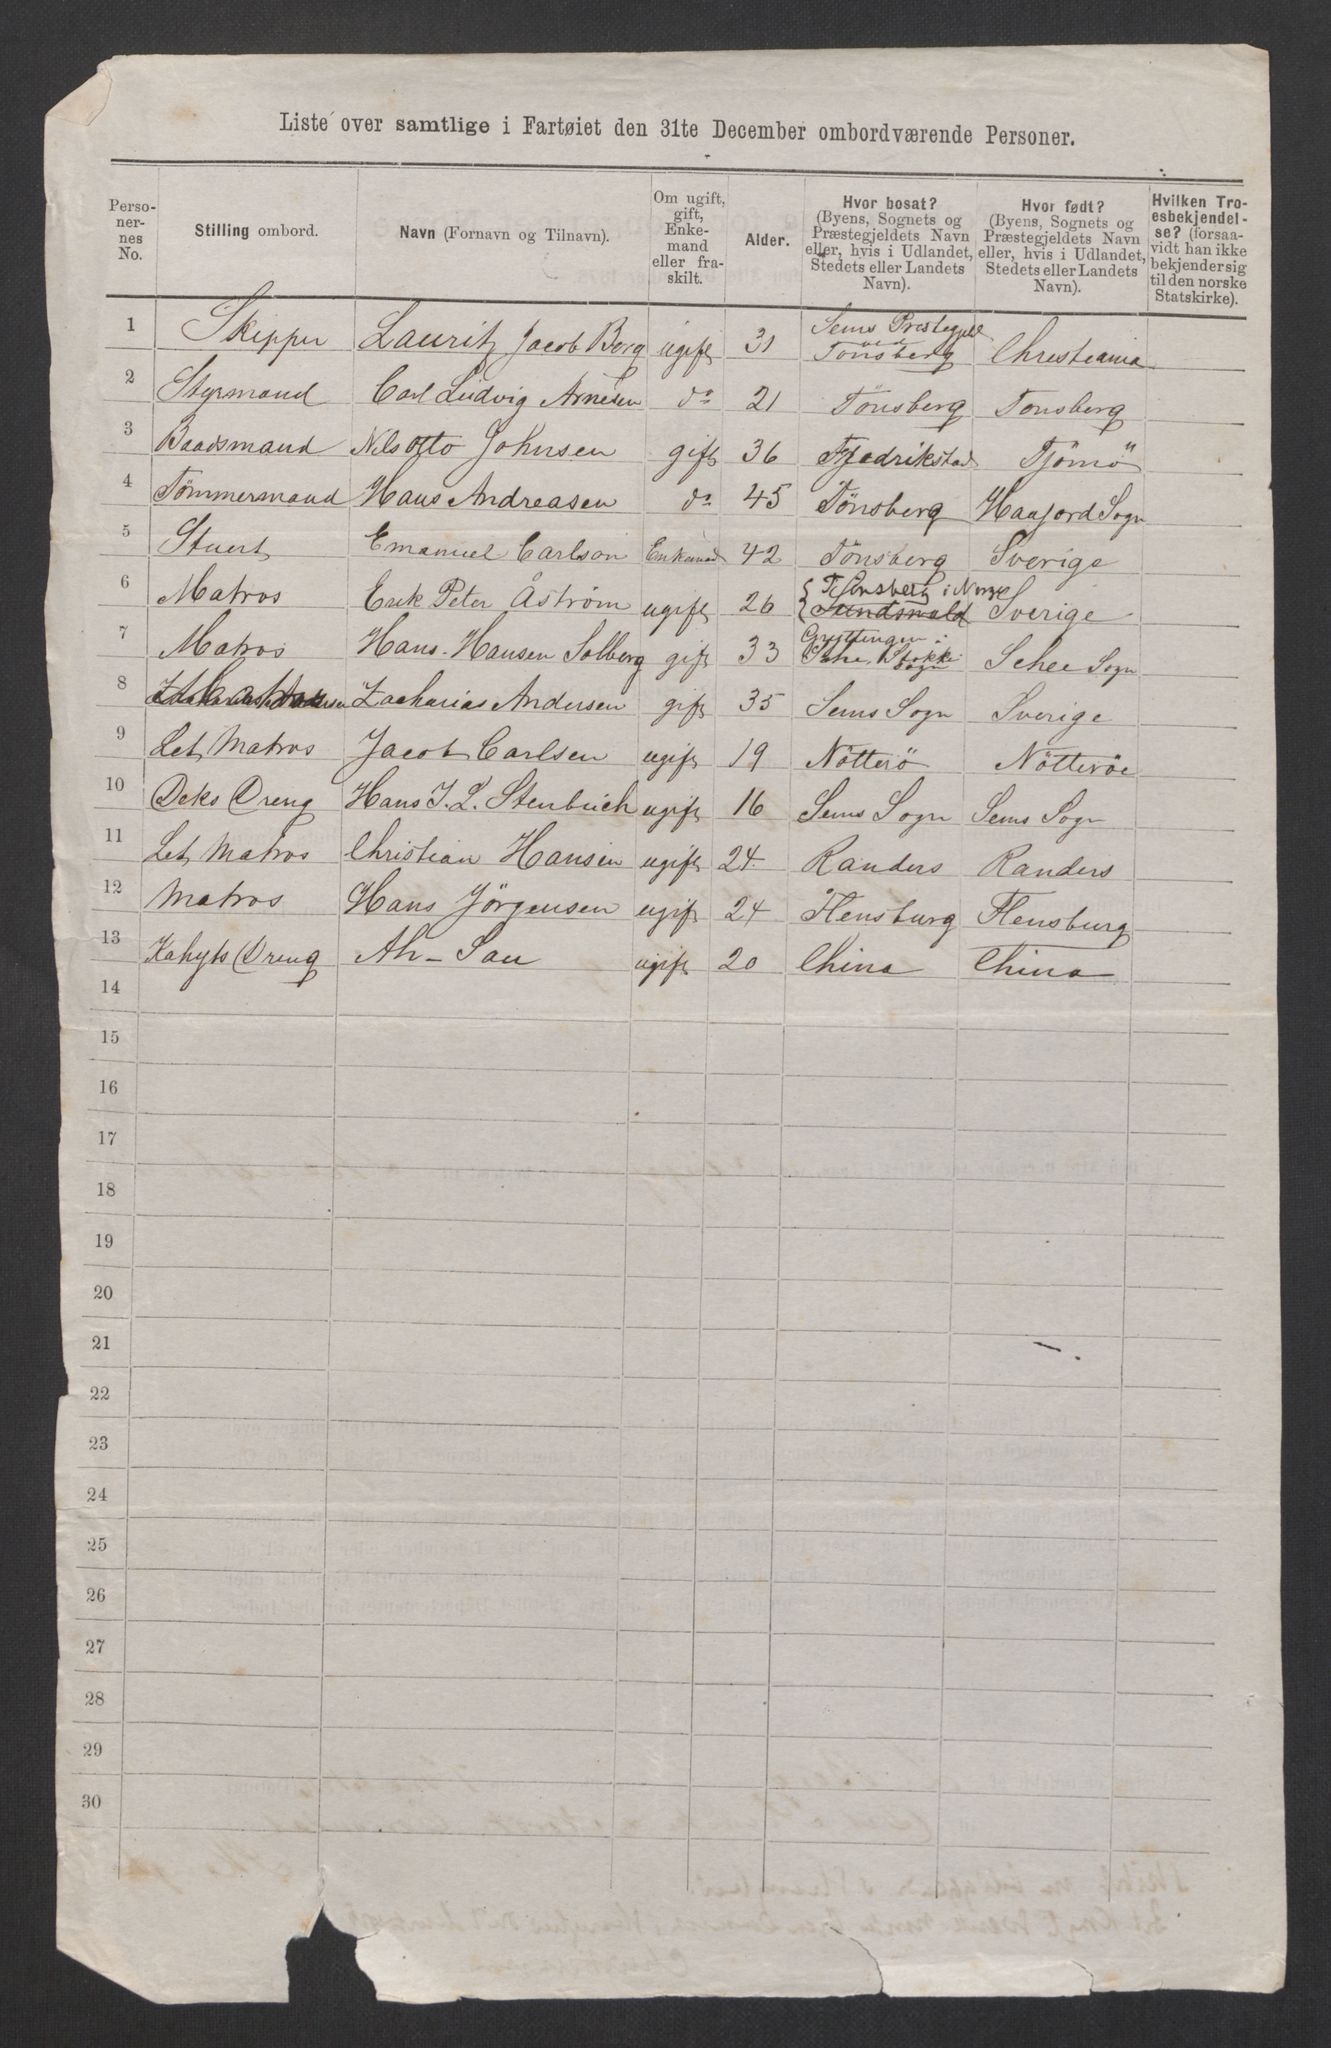 Liste over samtlige i Fartøiet den 31te December ombordværende Personer.
Personernes No. | Stilling ombord. | Navn (Fornavn og Tilnavn). | Om ugift, gift, Enkemand eller fraskilt. | Alder. | Hvor bosat? (Byens, Sognets og Præstegjeldets Navn eller, hvis i Udlandet, Stedets eller Landets Navn). | Hvor født? (Byens, Sognets og Præstegjeldets Navn eller, hvis i Udlandet, Stedets eller Landets Navn). | Hvilken Troesbekjendelse? (forsaavidt han ikke bekjender sig til den norske Statskirke).
1 Skipper Lauritz Jacob Borg ugift 31 Sems Prestegjeld ved Tønsberg Christiania
2 Styrmand Carl Ludvig Arnesen do 21 Tönsberg Tonsberg
3 Baadsmand Nils Otto Johnsen gift 36 Fredrikstad Tjömö
4 Tömmermand Hans Andreasen do 45 Tönsberg Haafjord Sogn
5 Stuert Emanuel Carlson Enkemad 42 Tönsberg Sverige
6 Matros Erik Peter Åström ugift 26 Tønsberg i Norge Sundswald Sverige
7 Matros Hans Hansen Solberg gift 33 Stokke Sogn Schee Sogn
8 Zacharias Andersen gift 35 Sems Sogn Sverige
9 Let Matros Jacob Carlsen ugift 19 Nötterö Nötteröe
10 Deks Dreng Hans J. L. Stenbuch ugift 16 Sems Sogn Sems Sogn
11 Let Matros Christian Hansen ugift 24 Randers Randers
12 Matros Hans Jörgensen ugift 24 Flensburg Flensburg
13 Kahyts Dreng Ah-Sau ugift 20 China China
14
15
16
17
18
19
20
21
22
23
24
25
26
27
28
29
30